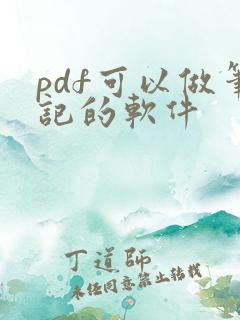 pdf可以做筆
記的軟件
丁道師
未经同意禁止转载